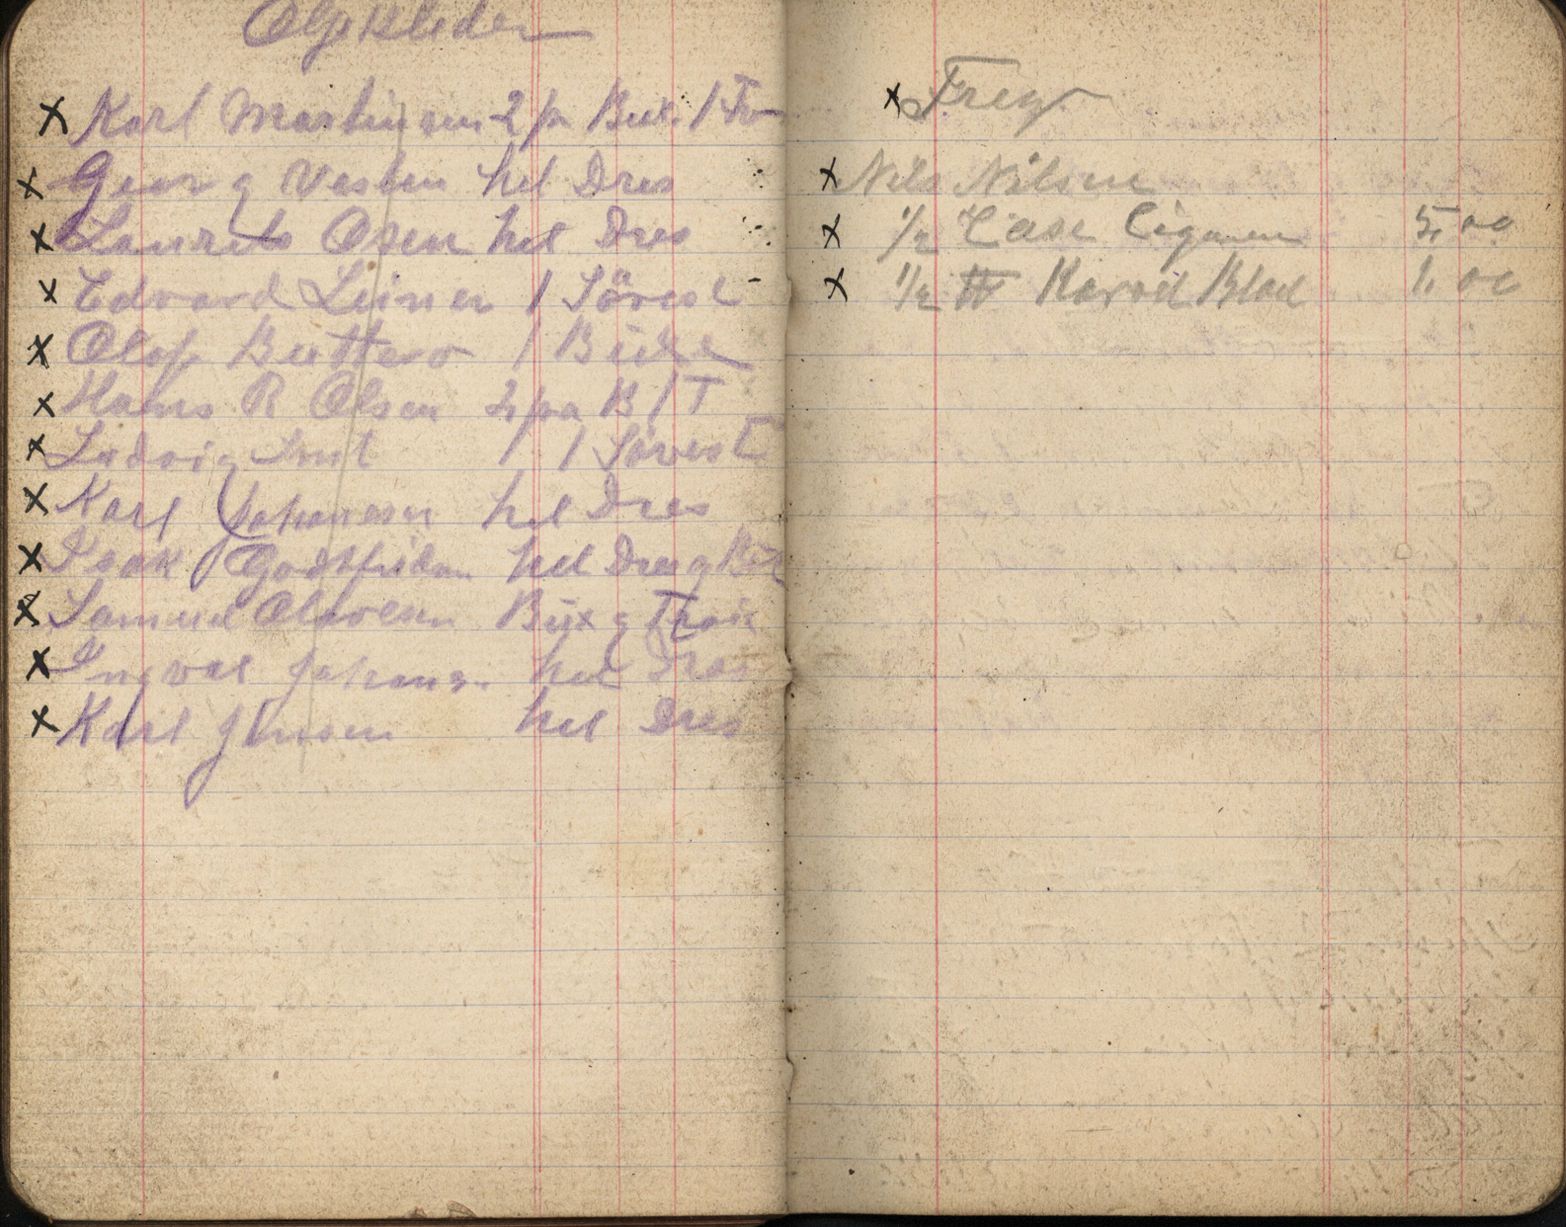 Oljekleder
x Karl Martinsen 2 pa Bux. 1 Tr
x Georg Vesten hel Dres
x Laurets Olsen hel Dres
x Edvard Leiner 1 Sövest
x Olof 1 Buxe
x Hans R Olsen 2 pa B 1 T
x Ludvig 1 Sövest
x Karl Johansen hel Dres
x Isak Godtfridsen hel Dres g Bux
x Samuel Olavesen Bux g Troie
x Ingval Johans. hel Dres
x Karl Jensen hel Dres
x Frey
x Nils Nilsen
x 1/2 Case Cigaren 5,00
x 1/2 ℔ Karvd Blad 1.00